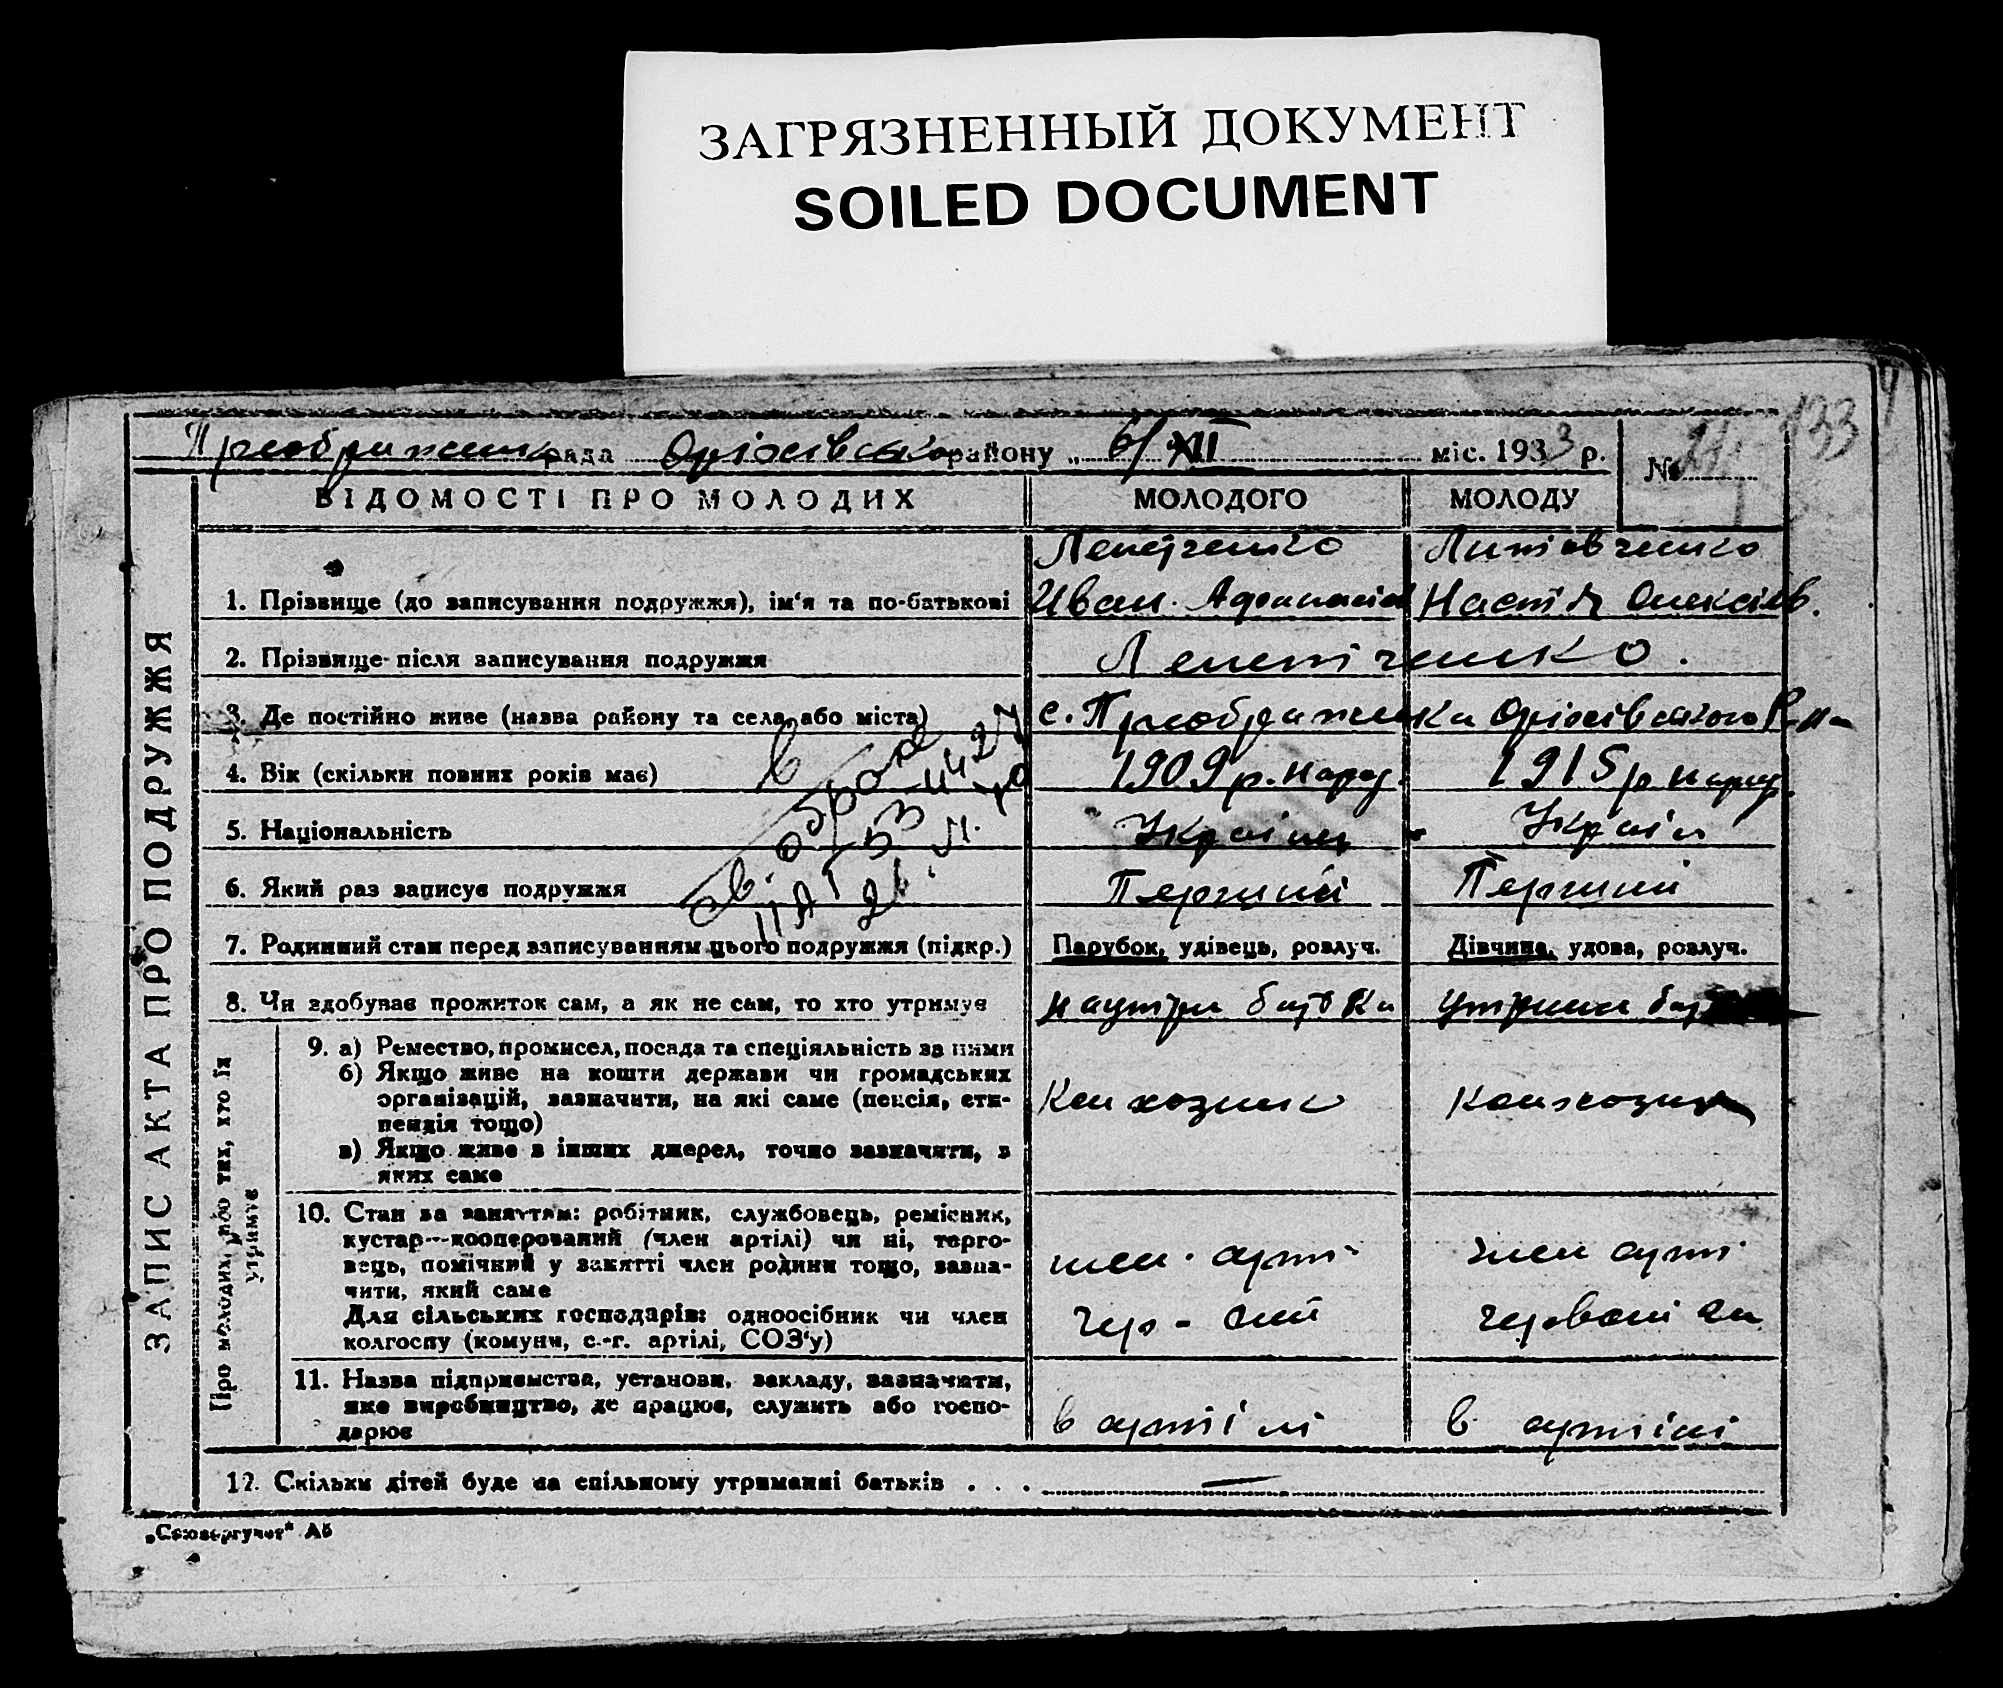 ЗАГРЯЗНЕННЫЙ ДОКУМЕНТ
SOILED DOCUMENT
133
Преображенка рада Оріхівського району „ 6/XII міс. 1933 р. №
ЗАПИС АКТА ПРО ПОДРУЖЖЯ
ВІДОМОСТІ ПРО МОЛОДИХ МОЛОДОГО МОЛОДУ
Лепетченко Литовченко
1. Прізвище (до записування подружжя), ім'я та по-батькові Иван Афанасіев Настія Олексієв.
2. Прізвище після записування подружжя Лепетіченко.
3. Де постійно живе (назва району та села або міста) с. Преображенка Оріхівського Р-на
4. Вік (скільки повних років має) 1909 р. народ. 1915 р народ.
5. Національність Україн Україн
6. Який раз записує подружжя Перший Перший
св. о браке
7. Родинний стан перед записуванням цього подружжя (підкр.) Парубок, удівець, розлуч. Дівчина, удова, розлуч.
8. Чи здобуває прожиток сам, а як не сам, то хто утримує
Про молодих, або тих, хто їх утримує
9. а) Ремество, промисел, посада та спеціяльність за ними
б) Якщо живе на кошти держави чи громадських
організацій, зазначити, на які саме (пенсія, сти-
пендія тощо)
в) Якщо живе з інших джерел, точно зазначити, з
яких саме
Колхозник
10. Стан за заняттям: робітник, службовець, ремісник,
кустар—кооперований (член артілі) чи ні, торго-
вець, помічний у занятті член родини тощо, зазна-
чити, який саме
Для сільських господарів: одноосібник чи член
колгоспу (комуни, с.-г. артілі, СОЗ'у)
член арті член арті
11. Назва підприємства, установи, закладу, зазначити,
яке виробництво, де працює, служить або госпо-
дарює
в артілі в артілі
12. Скільки дітей буде на спільному утриманні батьків . . . —
„Союзоргучет" АБ